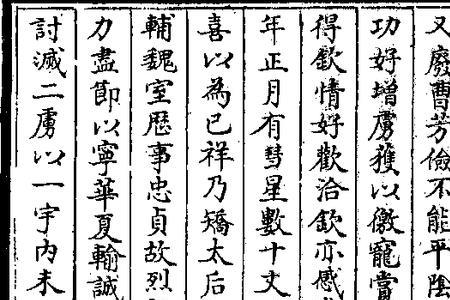 又廢曹芳儉不能平陰
功好增虜獲以徼寵賞
得欽情好歡洽欽亦感
年正月有彗星數十丈
喜以為已祥乃矯太后
輔魏室歷事忠貞故烈
力盡節以寧華夏輸誠
討滅二虜以一宇內未